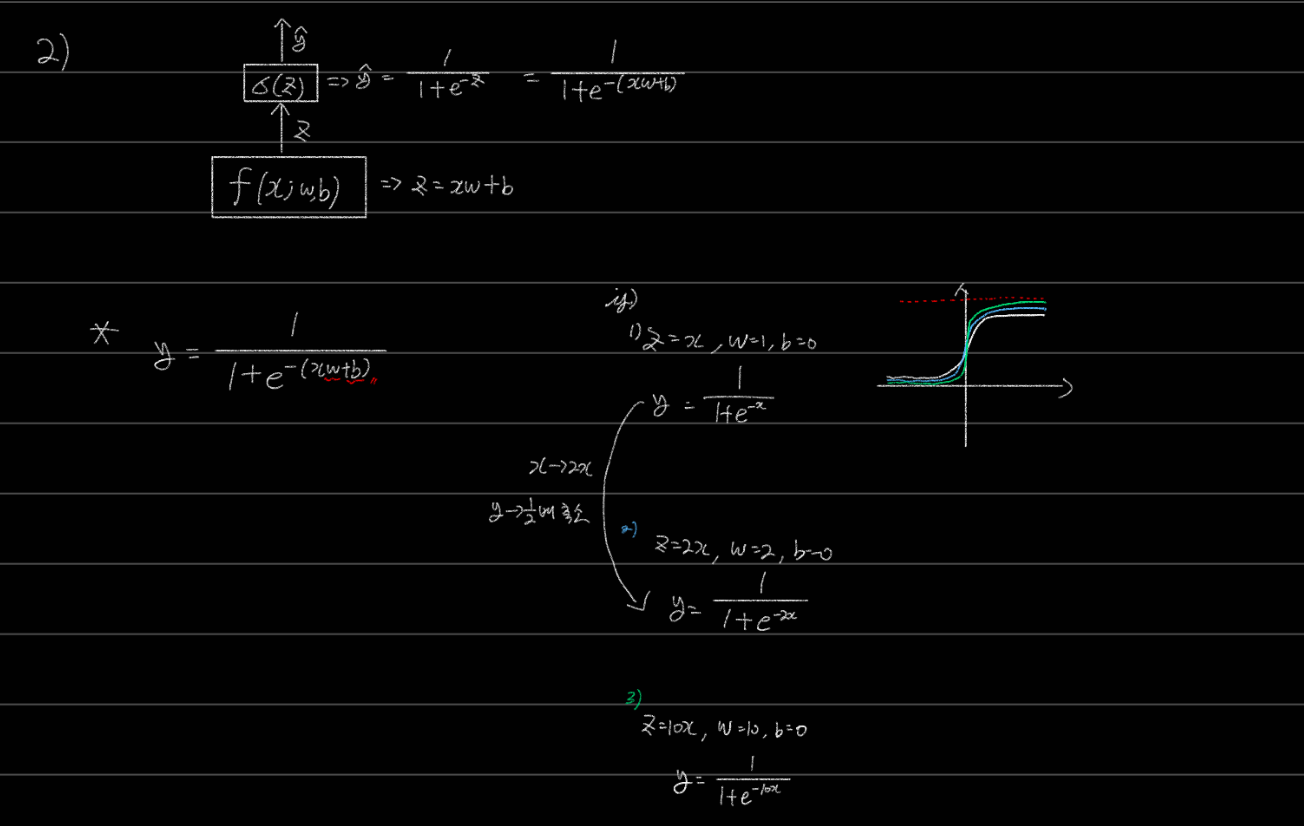 2)
ŷ
σ(z) => ŷ = 1/(1+e^-z) = 1/(1+e^-(xw+b))
z
f(x;w,b) => z=xw+b
* y = 1/(1+e^-(xw+b))
if)
1) z=x, w=1, b=0
y = 1/(1+e^-x)
x->2x
y->1/2배 축소
2)
z=2x, w=2, b=0
y= 1/(1+e^-2x)
3)
z=10x, w=10, b=0
y= 1/(1+e^-10x)